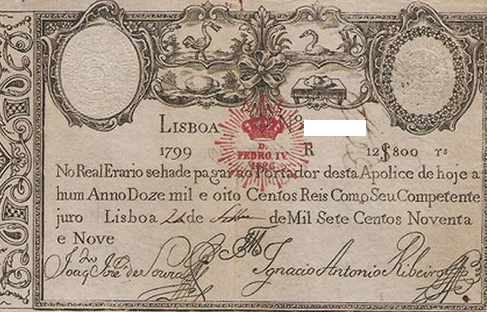 LISBOA
1799 R 12$800 rs
D.
PEDRO IV
1826
No Real Erario se hade pagar ao Portador desta Apolice de hoje a
hum Anno Doze mil e oito Centos Reis Com o Seu Competente
juro Lisboa de de Mil Sete Centos Noventa
e Nove
Joaq. José de Souza
Ignacio Antonio Ribeiro